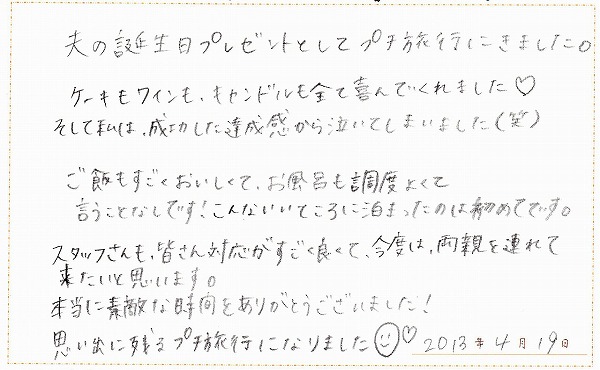 夫の誕生日プレゼントとしてプチ旅行にきました。
ケーキもワインも、キャンドルも全て喜んでくれました♡
そして私は、成功した達成感から泣いてしまいました(笑)
ご飯もすごくおいしくて、お風呂も調度よくて
言うことなしです!こんないいところに泊まったのは初めてです。
スタッフさんも、皆さん対応がすごく良くて、今度は、両親を連れて
来たいと思います。
本当に素敵な時間をありがとうございました!
思い出に残るプチ旅行になりました☺♡
2013年4月19日